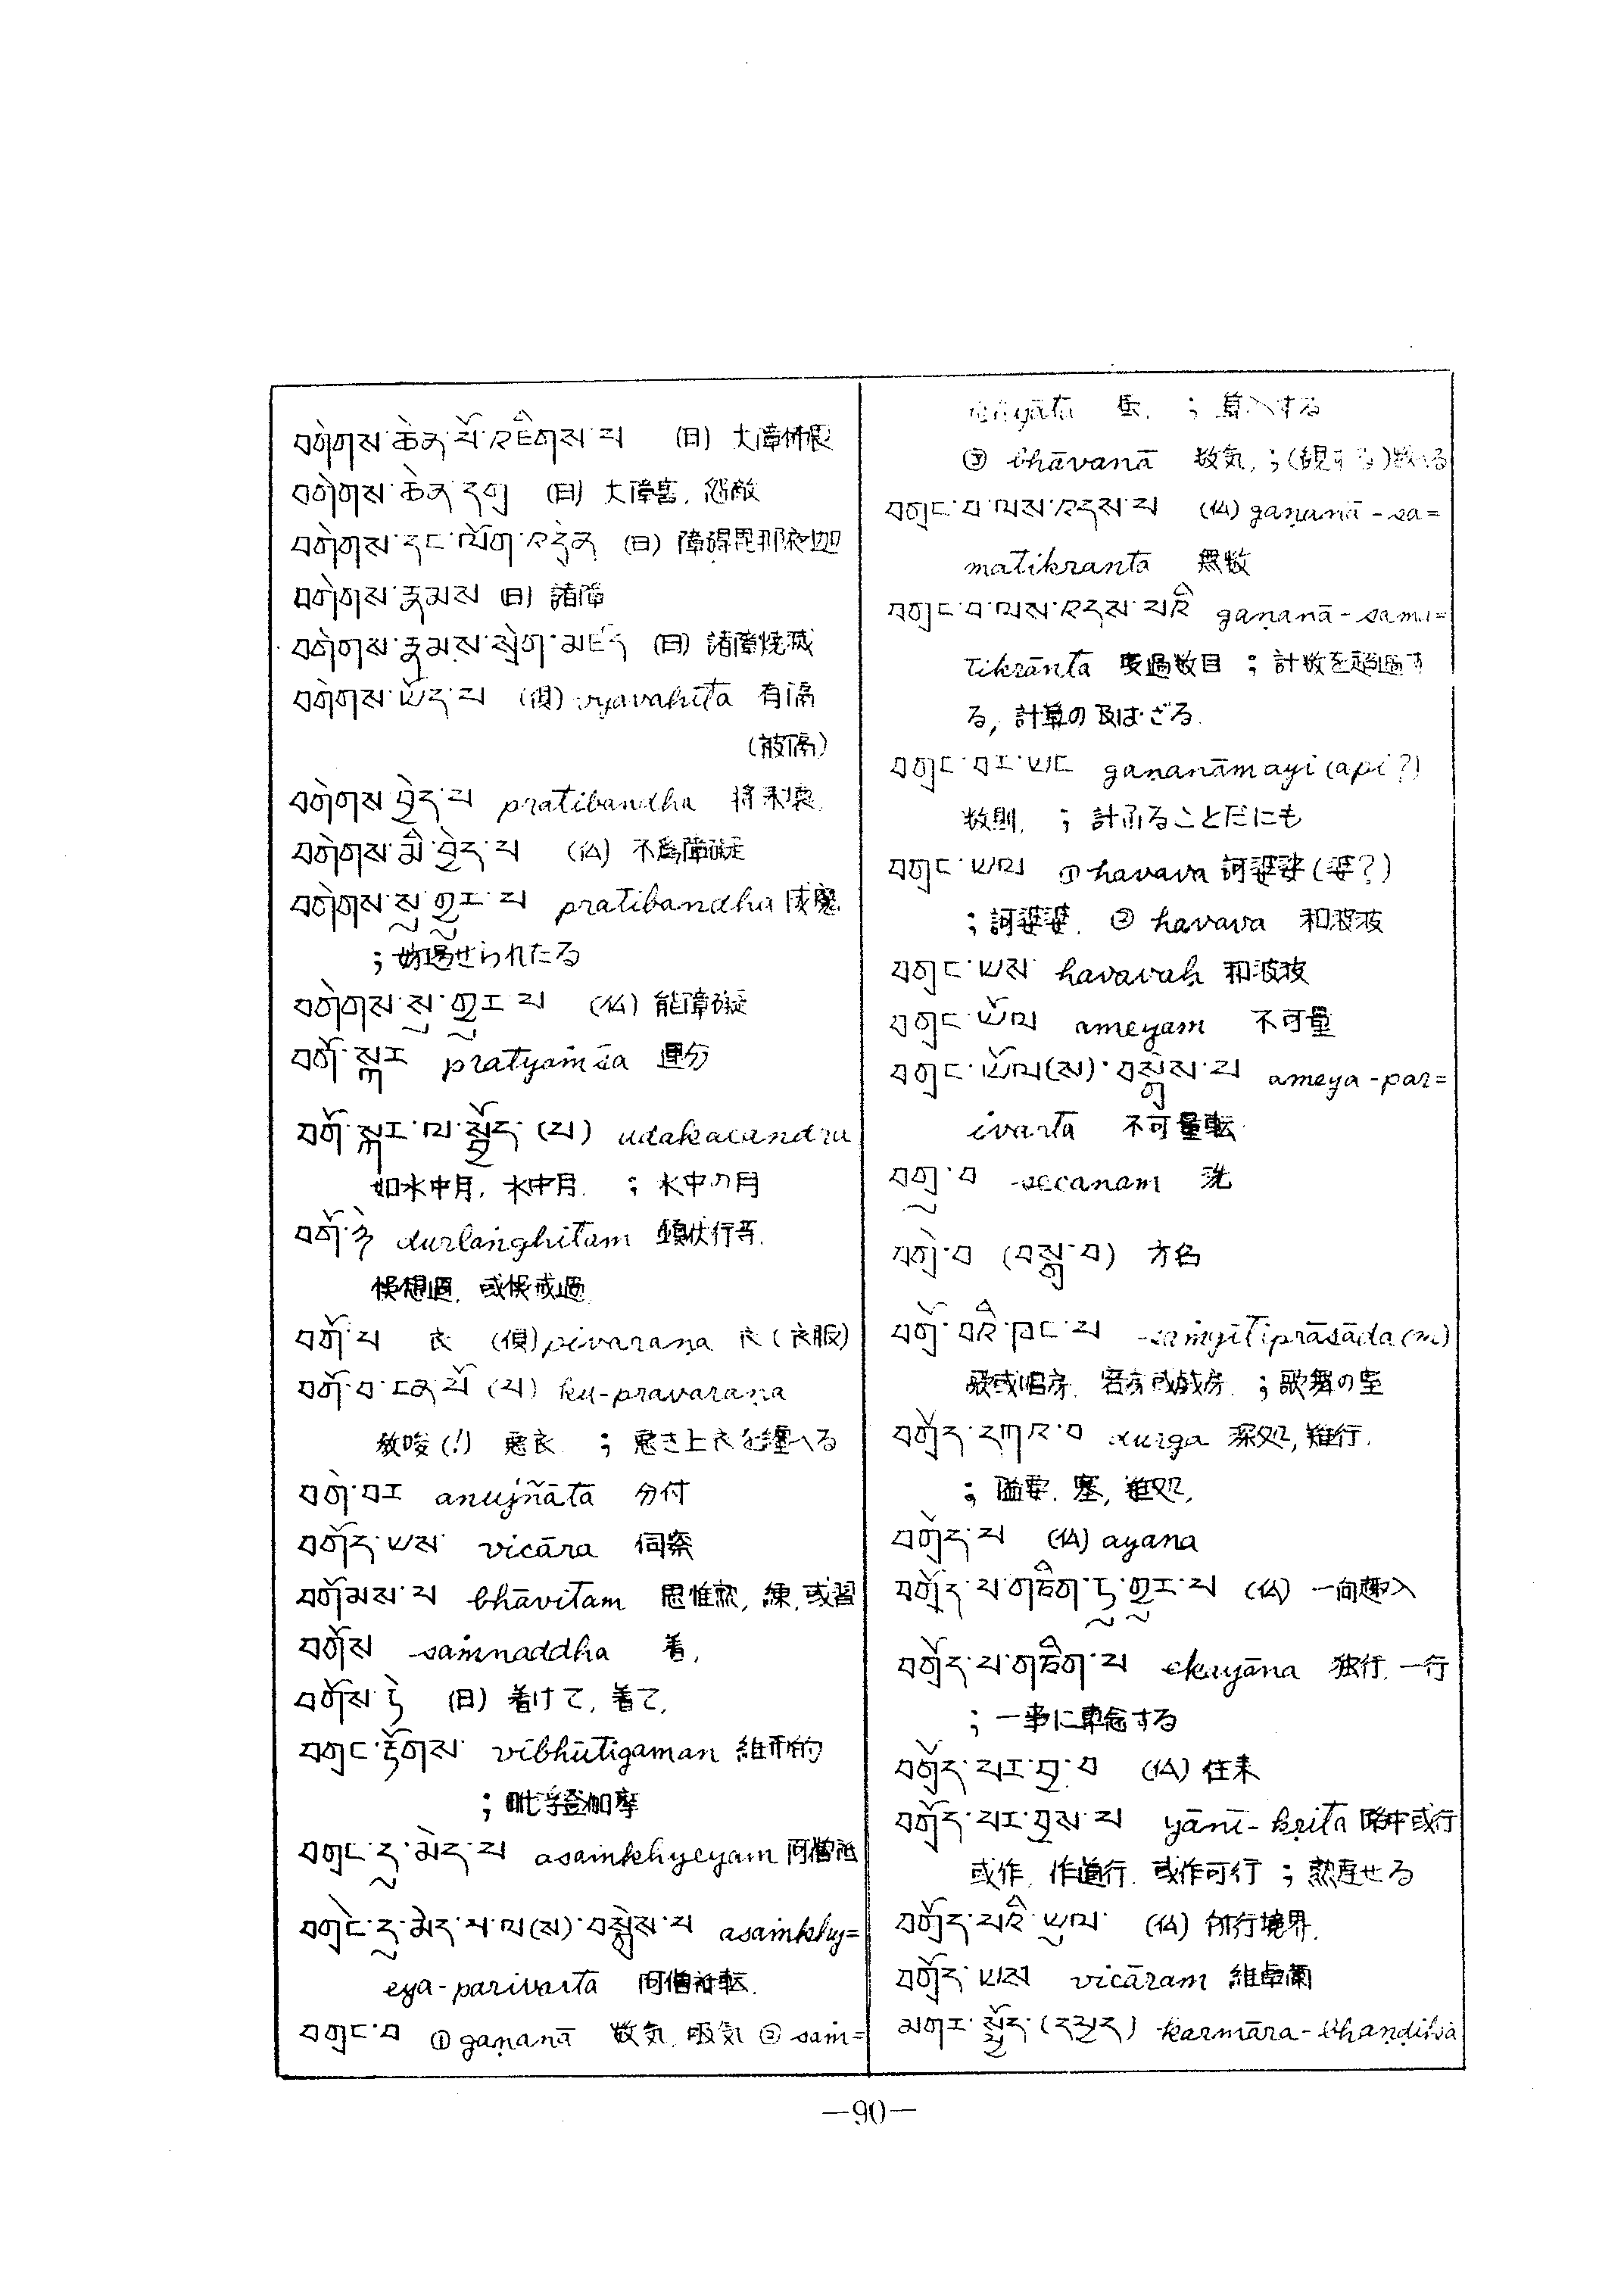 བགེགས་ཆེན་པོ་འཇིགས་པ (日) 大障怖畏
བགེགས་ཆེན་དགྲ (日) 大障害, 怨敵
བགེགས་དང་ལོག་འདྲེན (日) 障碍毘那夜迦
བགེགས་རྣམས (日) 諸障
བགེགས་རྣམས་སྲེག་མཛད (日) 諸障焼滅
བགེགས་ཡོད་པ (倶) vyavahita 有隔
(被隔)
བགེགས་བྱེད་པ pratibandha 将来壊
བགེགས་མི་བྱེད་པ (仏) 不為障礙
བགེགས་སུ་གྱུར་པ pratibandha 成魔
; 妨遏せられたる
བགེགས་སུ་གྱུར་པ (仏) 能障礙
བགོ་སྐར pratyaṁśa 運分
བགོ་སྐར་ལ་སྤྱོད་(པ) udakacandra
如水中月, 水中月. ; 水中の月
བགོ་ durlaṅghitam
བགོ་བ 衣 (倶) pivaraṇa 衣 (衣服)
བགོ་བ་ངན་པོ་(པ) ku-pravaraṇa
(!) 悪衣 ; 悪き上衣を纏へる
བགེ་བར anujñāta 分付
བགོད་ཡས་ vicāra 伺察
བགོམས་པ bhāvitam 思惟 , 練, 或習
བགོས saṁnaddha 着,
བགོས་ཏེ (日) 着けて, 着て,
བགྲང་རྟོགས་ vibhūtigaman
; 毗浮登伽摩
བགྲང་དུ་མེད་པ asaṁkhyeyam 阿僧祇
བགྲང་དུ་མེད་པ་ལ(ས)་བསྒྲེས་པ asaṁkhy=
eya-parivarta 阿僧祇転.
བགྲང་བ ① gaṇanā 数気, 吸気 ② saṁ=
khyāta ; 算入する
③ bhāvanā 数気, ; (観する) 数へる
བགྲང་བ་ལས་འདས་པ (仏) gaṇanā-sa=
matikranta 無数
བགྲང་བ་ལས་འདས་པའི gaṇanā-sama=
tikrānta 度過数目 ; 計数を超過す
る, 計算の及ばざる.
བགྲང་བར་ཡང gananāmayi (api ?)
数則, ; 計ふることだにも
བགྲང་ཡལ ① havava 訶婆娑 (婆?)
; 訶婆婆. ② havava 和波波
བགྲང་ཡས་ havavaḥ 和波波
བགྲང་ཡོལ ameyam 不可量
བགྲང་ཡོལ(ས)་བསྒྲེས་པ ameya-par=
ivarta 不可量転
བགྲུ་བ secanam 洗
བགྲེ་བ (བསྒྲ་བ) 方名
བགྲོ་བའི་ཁང་པ saṁgītiprāsāda(m)
歌或唱房, ; 歌舞の堂
བགྲོད་དཀའ་བ durga 深処, 難行,
; 隘要, 塞, 難処,
བགྲོད་པ (仏) ayana
བགྲོད་པ་གཅིག་ཏུ་གྱུར་པ (仏) 一向趣入
བགྲོད་པ་གཅིག་པ ekayāna 独行, 一行
; 一事に専念する
བགྲོད་པར་བྱ་བ (仏) 往来
བགྲོད་པར་བྱས་པ yānī-kṛita 路中或行
或作, 作道行, 或作可行 ; 熟達せる
བགྲོད་པའི་ཡུལ་ (仏) 所行境界.
བགྲོད་ཡས vicāram 維卓蘭
མགར་སྤྱོད་(དཔྱད) karmāra-bhaṇḍikā
—90—